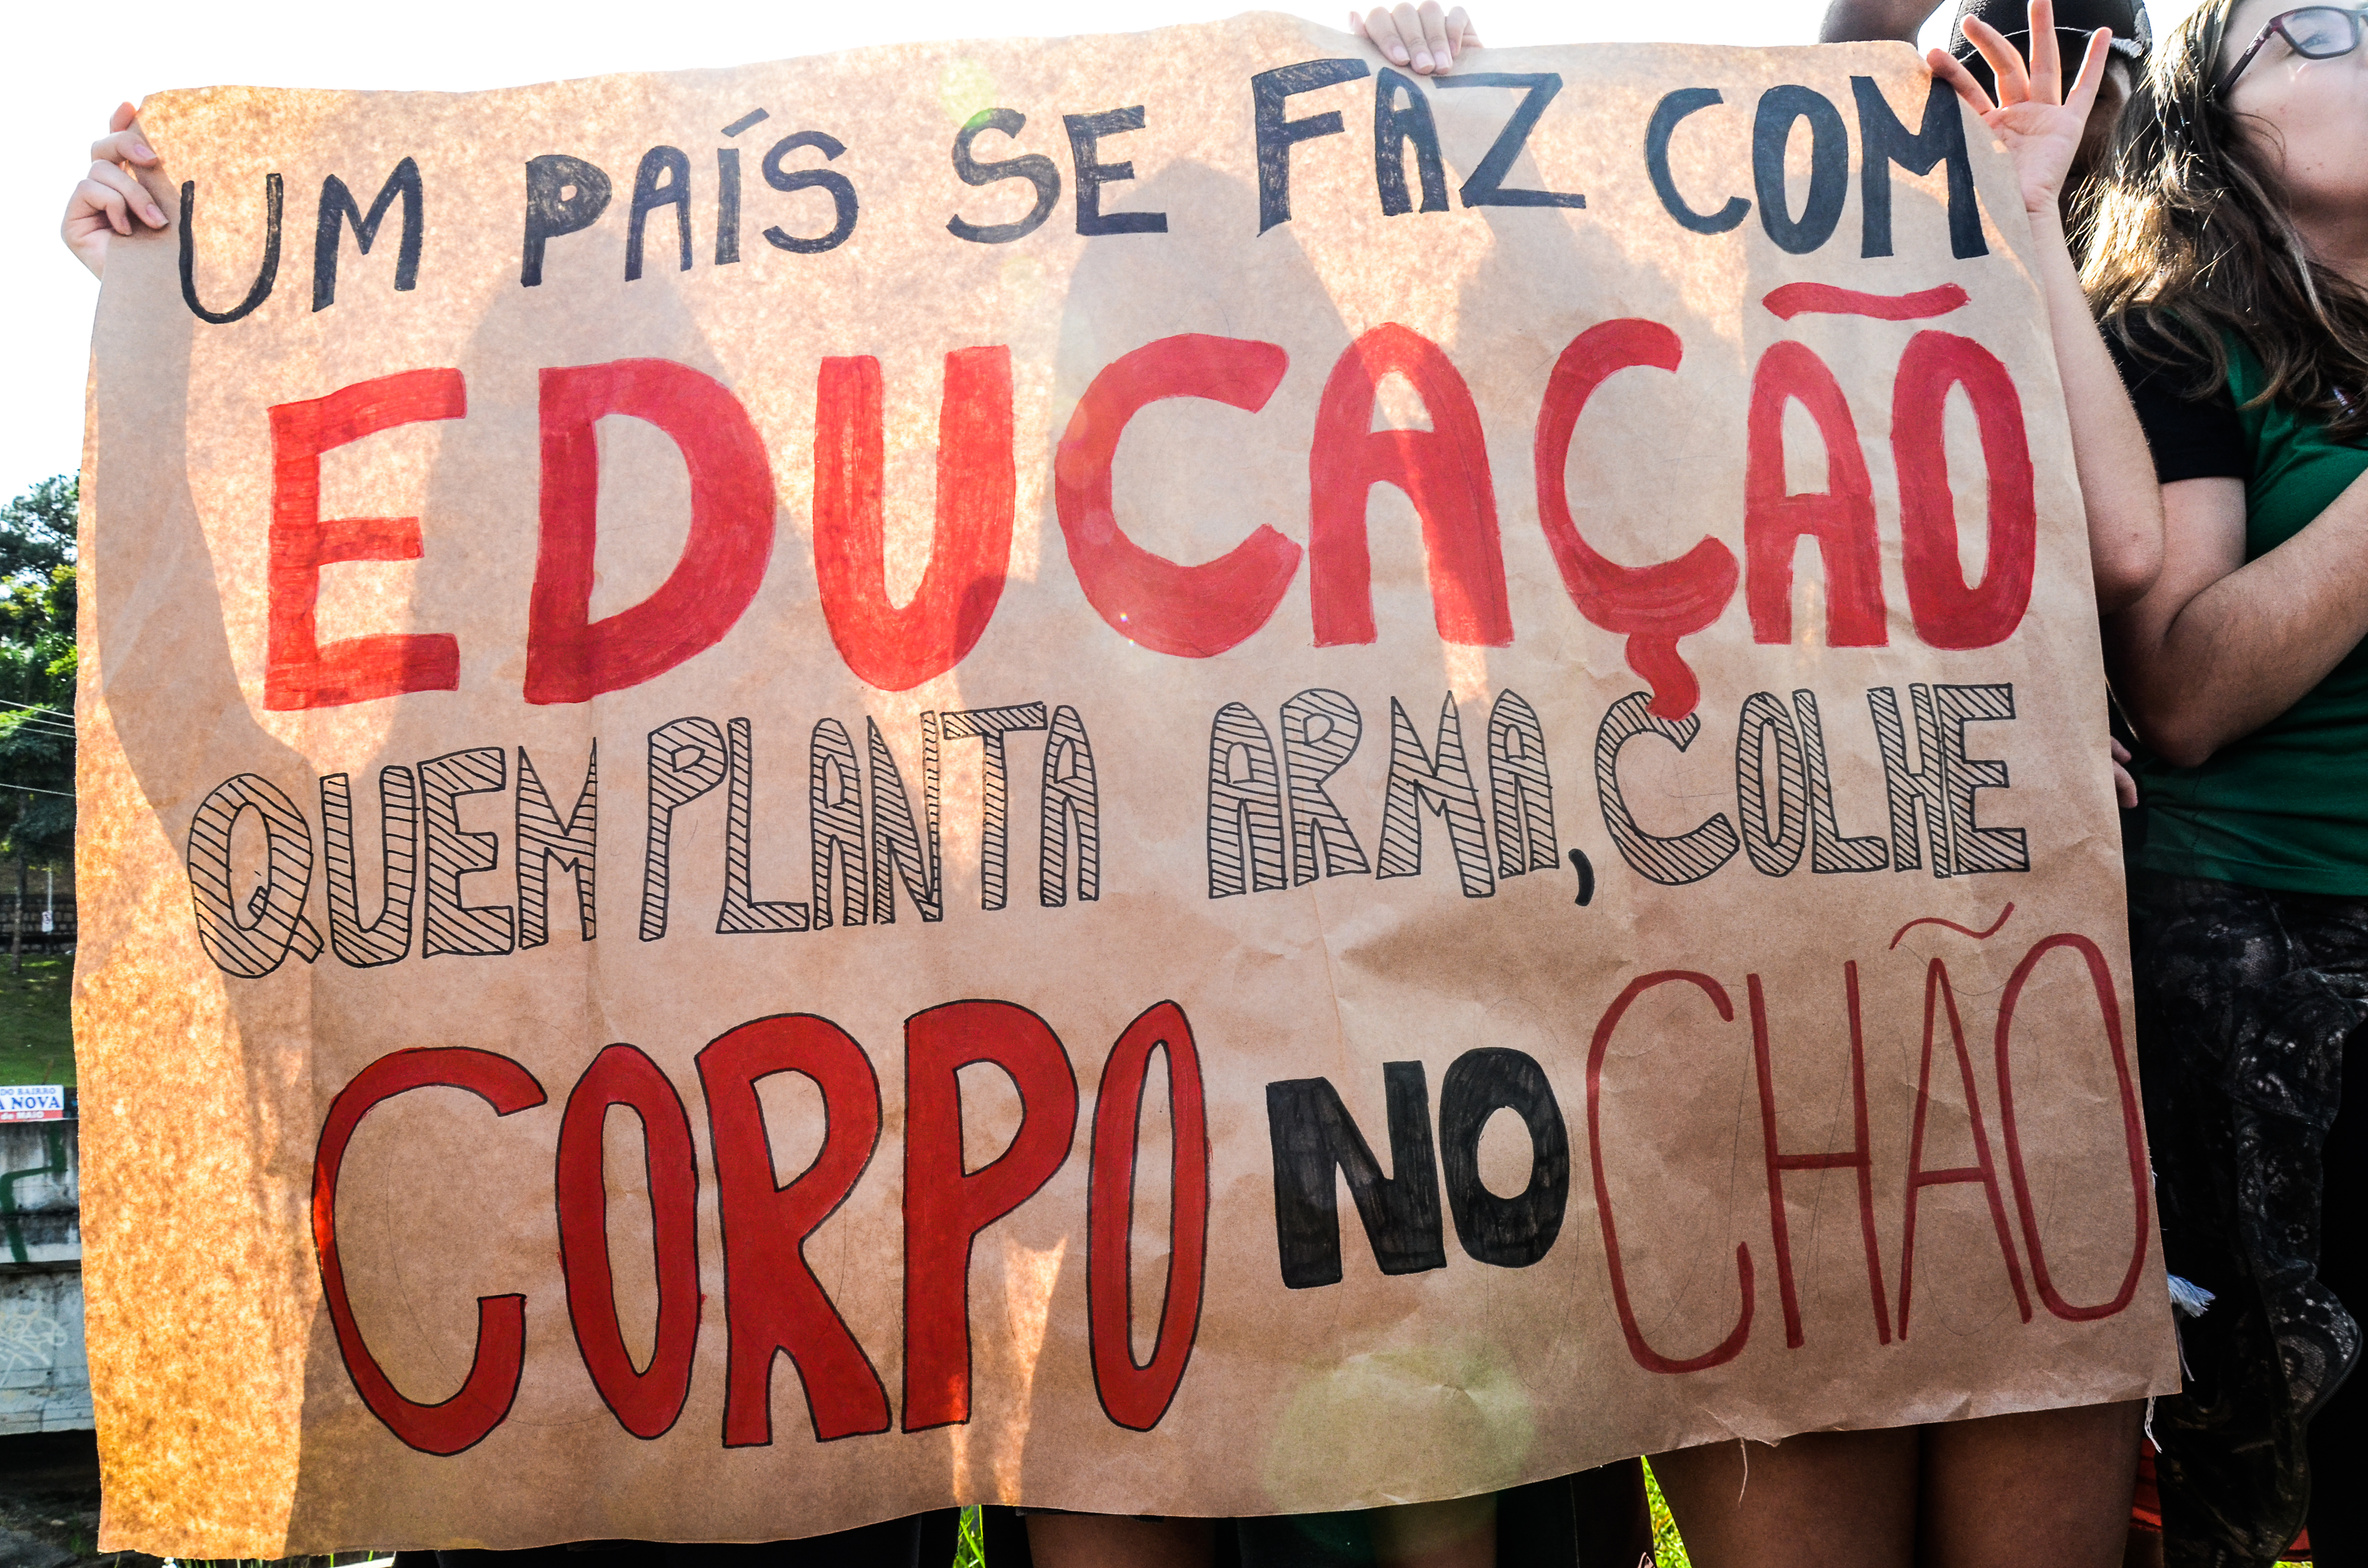 UM PAÍS SE FAZ COM
EDUCAÇÃO
QUEM PLANTA ARMA, COLHE
CORPO NO CHÃO
DO BAIRRO
A NOVA
de MAIO